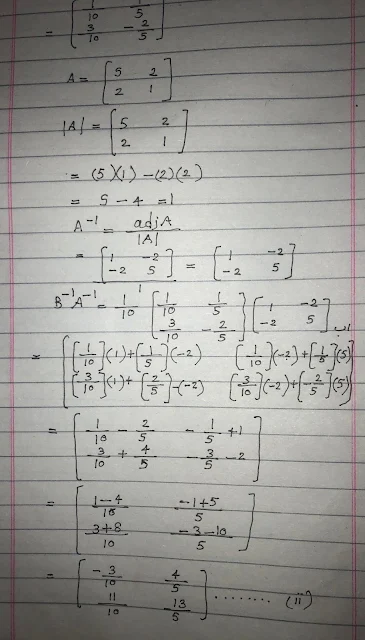 = [ 1/10 1/5
3/10 -2/5 ]
A = [ 5 2
2 1 ]
|A| = [ 5 2
2 1 ]
= (5)(1) - (2)(2)
= 5 - 4 = 1
A⁻¹ = adj A / |A|
= [ 1 -2
-2 5 ] / 1 = [ 1 -2
-2 5 ]
B⁻¹A⁻¹ = 1/10 [ 1/10 1/5
3/10 -2/5 ] [ 1 -2
-2 5 ]
= [ [1/10](1)+[1/5](-2) [1/10](-2)+[1/5](5)
[3/10](1)+[2/5]-(-2) [3/10](-2)+[-2/5](5) ]
= [ 1/10 - 2/5 -1/5 +1
3/10 + 4/5 -3/5 -2 ]
= [ 1-4/10 -1+5/5
3+8/10 -3-10/5 ]
= [ -3/10 4/5
11/10 13/5 ] ........ (ii)